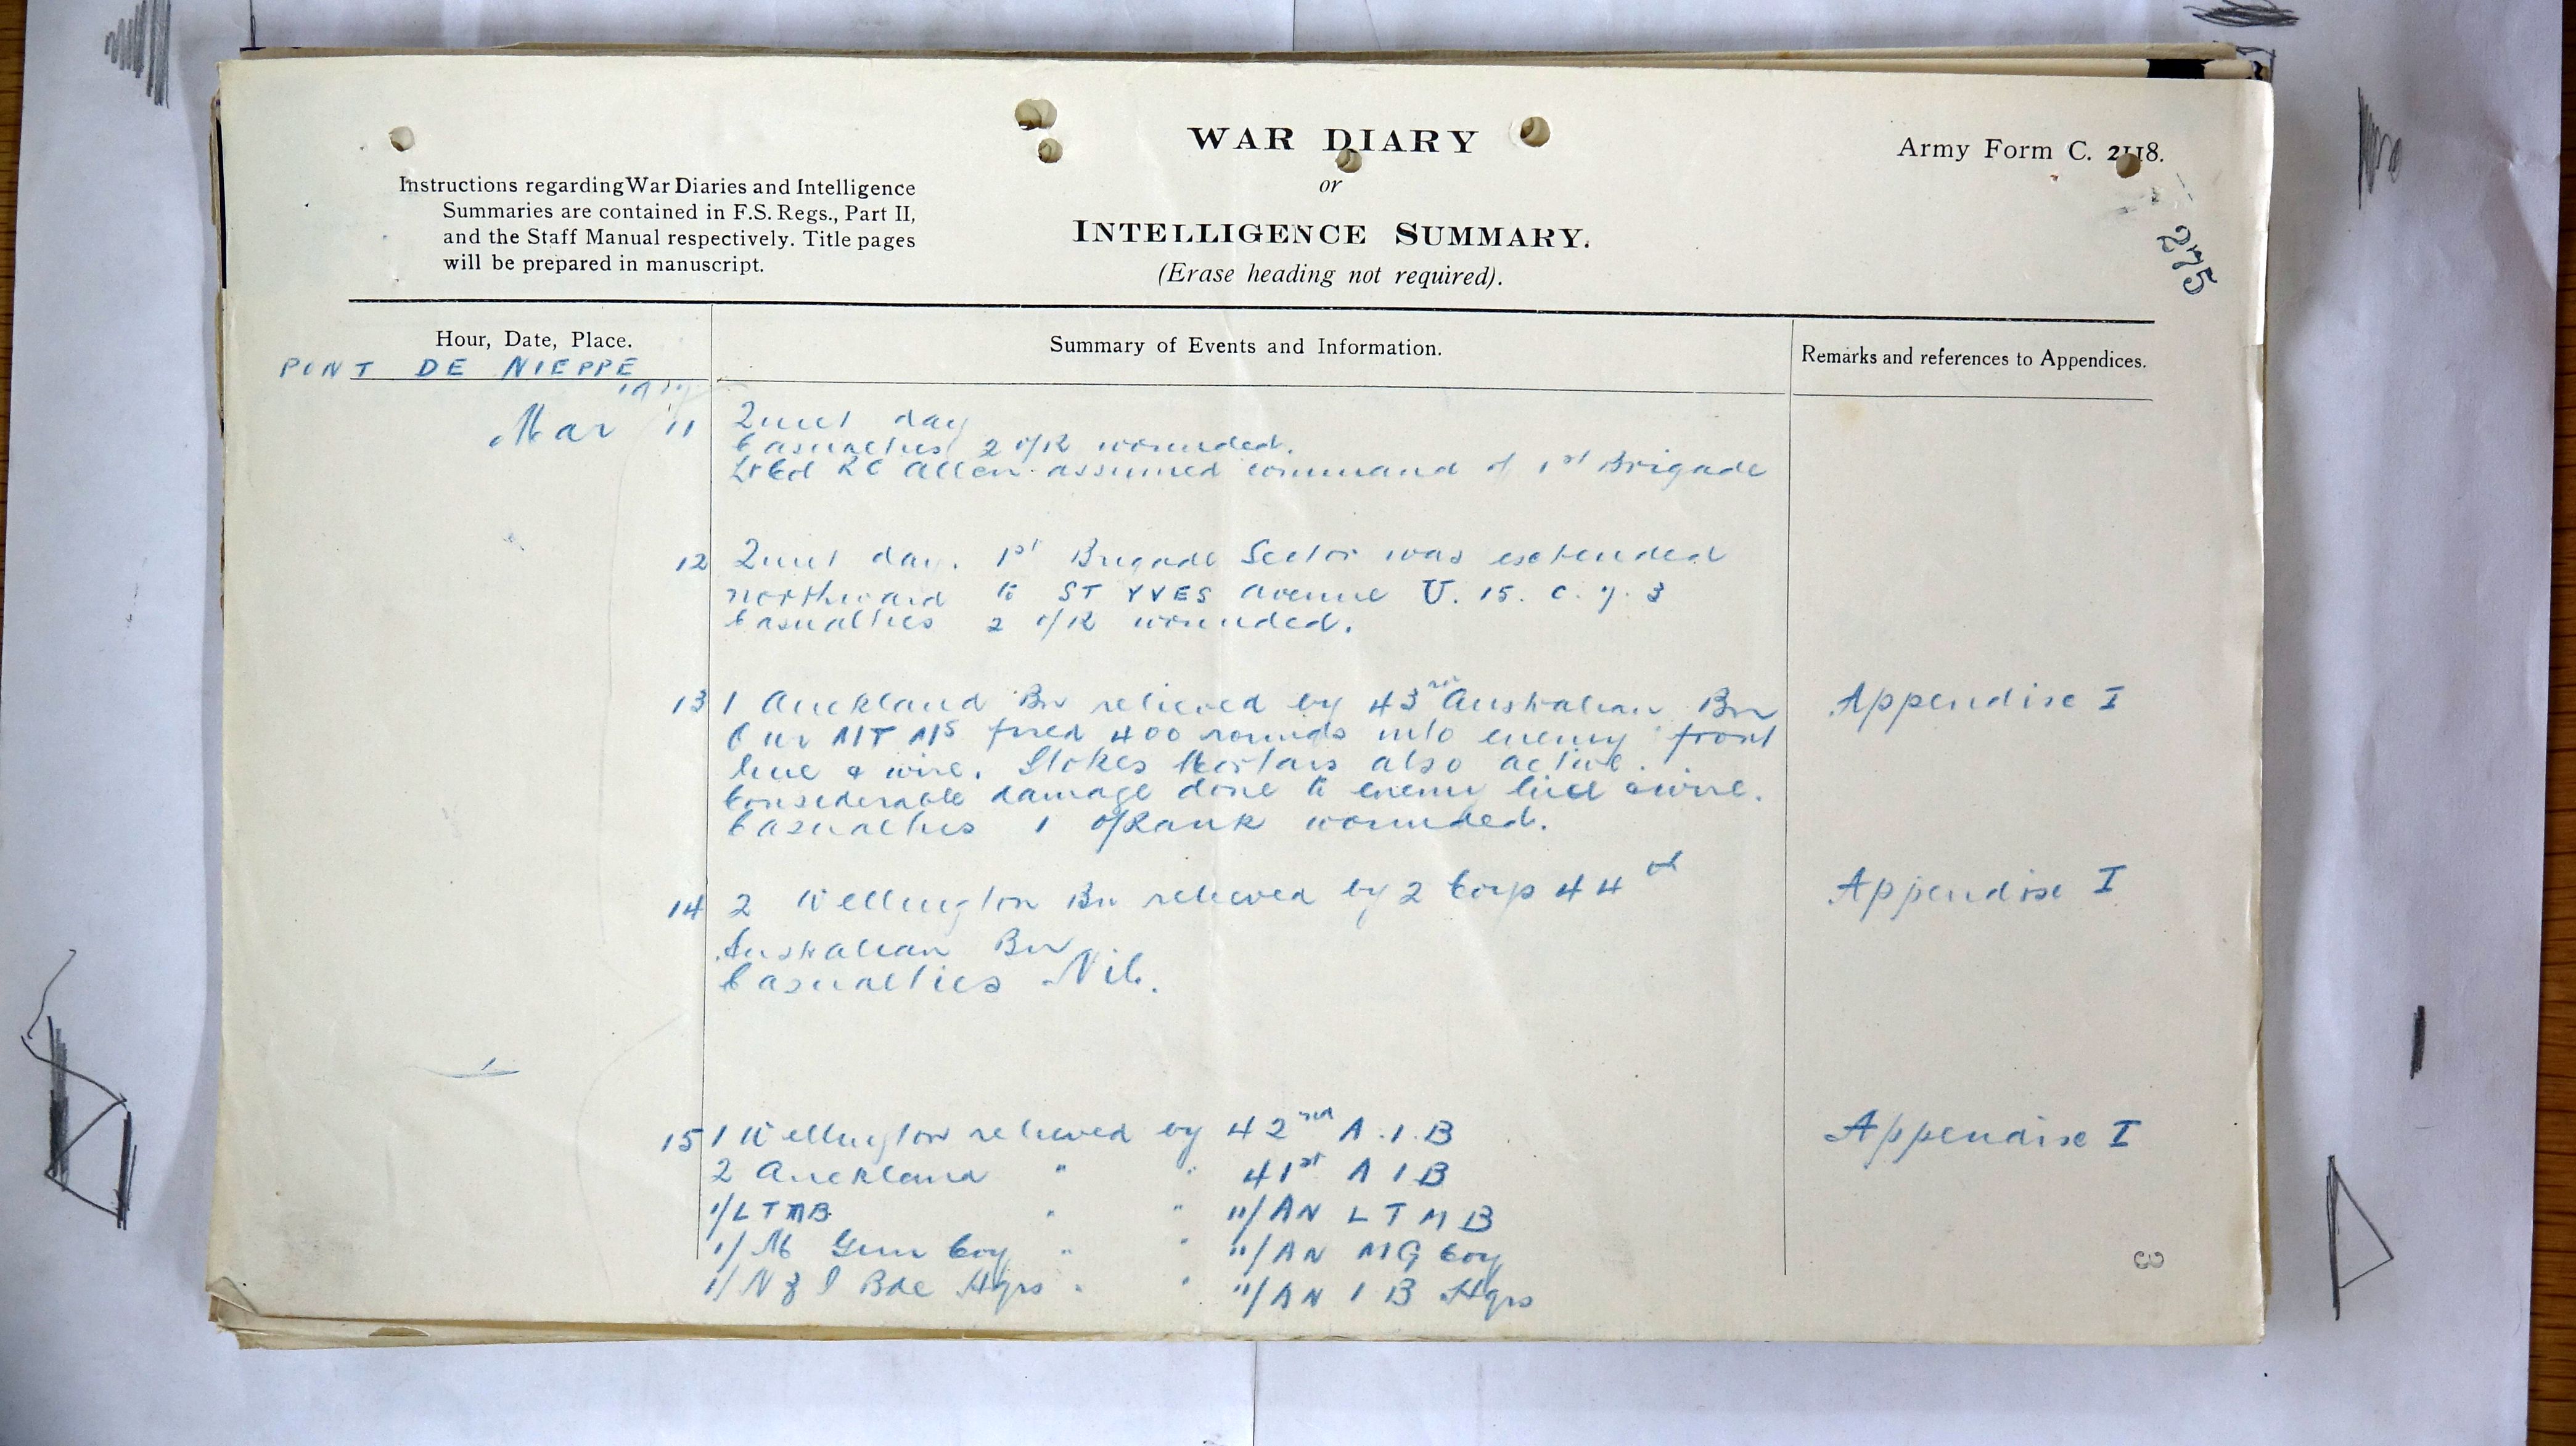 WAR DIARY
or
INTELLIGENCE SUMMARY.
(Erase heading not required).
Army Form C. 2118.
275
Instructions regarding War Diaries and Intelligence
Summaries are contained in F.S. Regs., Part II,
and the Staff Manual respectively. Title pages
will be prepared in manuscript.
Hour, Date, Place.
Summary of Events and Information.
Remarks and references to Appendices.
PONT DE NIEPPE
1917
Mar 11 Quiet day
Casualties 2 o/R wounded.
Lt Col RC Allen assumed command of 1st Brigade
12 Quiet day. 1st Brigade Sector was extended
northward to ST YVES avenue U. 15. c. 7. 3
Casualties 2 o/R wounded.
13 1 Auckland Bn relieved by 43rd Australian Bn Appendix I
Our MTMs fired 400 rounds into enemy front
line & wire. Stokes Mortars also active.
Considerable damage done to enemy line & wire.
Casualties 1 o/Rank wounded.
14 2 Wellington Bn relieved by 2 Coys 44th Appendix I
Australian Bn
Casualties Nil.
15 1 Wellington relieved by 42nd A.I.B Appendix I
2 Auckland " " 41st A I B
1/LTMB " " 11/AN L T M B
1/M Gun Coy " " 11/AN MG Coy
1/N Z I Bde Hqrs " " 11/AN I B Hqrs
3